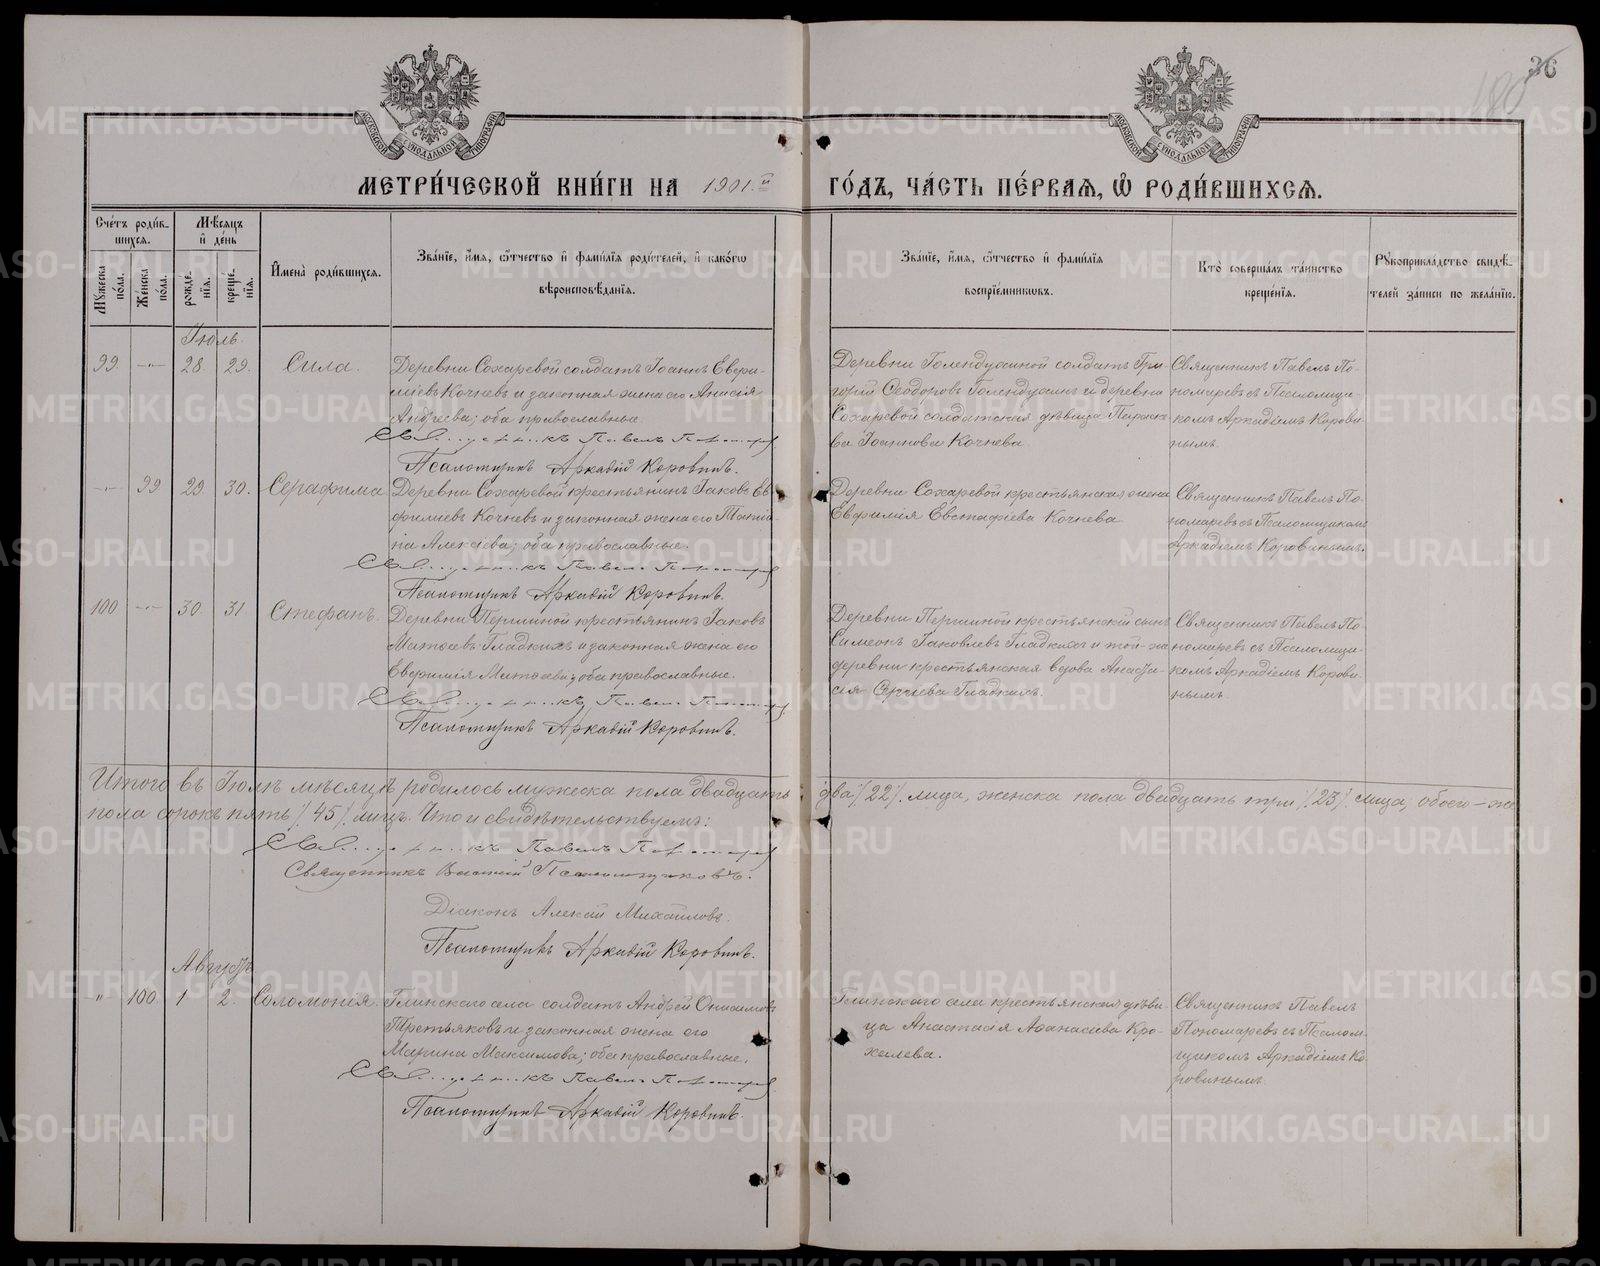 36
180
МОСКОВСКОЙ СѴНОДАЛЬНОЙ ТИПОГРАФІИ
МОСКОВСКОЙ СѴНОДАЛЬНОЙ ТИПОГРАФІИ
МЕТРИ́ЧЕСКОЙ КНИ́ГИ НА 1901.й ГО́ДЪ, ЧА́СТЬ ПЕ́РВАѦ, Ѡ҆ РОДИ́ВШИХСѦ.
Сче́тъ роди́в-
шихсѧ.
Мѣ́сѧцъ
и҆ де́нь
И҆мена̀ роди́вшихсѧ.
Зва́нїе, и҆́мѧ, ѻ҆́тчество и҆ фами́лїѧ роди́телей, и҆ како́гѡ
вѣроисповѣ́данїѧ.
Зва́нїе, и҆́мѧ, ѻ҆́тчество и҆ фами́лїѧ
воспрїе́мникѡвъ.
Кто̀ соверша́лъ та́инство
креще́нїѧ.
Рꙋкоприкла́дство свидѣ́-
телей за́писи по жела́нїю.
Мꙋ́жеска
по́ла.
Же́нска
по́ла.
рожде́-
нїѧ.
креще́-
нїѧ.
Іюль.
99. — 28 29. Сила.
Деревни Сохаревой солдатъ Іоаннъ Евфи-
міевъ Кочневъ и законная жена его Анисія
Андреева; оба православные.
Священникъ Павелъ Пономаревъ
Псаломщикъ Аркадій Коровинъ.
Деревни Голендухиной солдатъ Гри-
горій Ѳеодоровъ Голендухинъ и деревни
Сохаревой солдатская дѣвица Параске-
ва Іоаннова Кочнева.
Священникъ Павелъ По-
номаревъ съ Псаломщи-
комъ Аркадіемъ Корови-
нымъ.
— 99 29. 30. Серафима
Деревни Сохаревой крестьянинъ Іаковъ Ев-
фиміевъ Кочневъ и законная жена его Татіа-
на Алексіева; оба православные.
Священникъ Павелъ Пономаревъ
Псаломщикъ Аркадій Коровинъ.
Деревни Сохаревой крестьянская жена
Евфимія Евстафіева Кочнева
Священникъ Павелъ По-
номаревъ съ Псаломщикомъ
Аркадіемъ Коровинымъ.
100 — 30. 31. Стефанъ.
Деревни Першиной крестьянинъ Іаковъ
Матѳеевъ Гладкихъ и законная жена его
Евфимія Матѳеева; оба православные.
Священникъ Павелъ Пономаревъ
Псаломщикъ Аркадій Коровинъ.
Деревни Першиной крестьянскій сынъ
Симеонъ Іаковлевъ Гладкихъ и той-же
деревни крестьянская вдова Анаста-
сія Сергіева Гладкихъ.
Священникъ Павелъ По-
номаревъ съ Псаломщи-
комъ Аркадіемъ Корови-
нымъ.
Итого въ Іюлѣ мѣсяцѣ родилось мужеска пола двадцать два /. 22 /. лица, женска пола двадцать три /. 23 /. лица, обоего-же
пола сорокъ пять /. 45 /. лицъ. Что и свидѣтельствуемъ:
Священникъ Павелъ Пономаревъ
Священникъ Василій Псаломщиковъ.
Діаконъ Алексій Михайловъ.
Псаломщикъ Аркадій Коровинъ.
Августъ
" 100. 1 2. Соломонія.
Глинскаго села солдатъ Андрей Онисимовъ
Третьяковъ и законная жена его
Марина Максимова; оба православные.
Священникъ Павелъ Пономаревъ
Псаломщикъ Аркадій Коровинъ.
Глинскаго села крестьянская дѣви-
ца Анастасія Аѳанасіева Кро-
халева.
Священникъ Павелъ
Пономаревъ съ Псалом-
щикомъ Аркадіемъ Ко-
ровинымъ.
METRIKI.GASO-URAL.RU